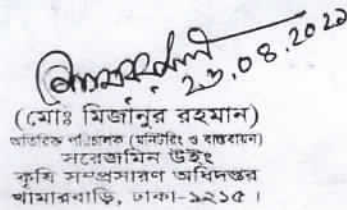 ২৩.০৪.২০২১
(মোঃ মিজানুর রহমান)
অতিরিক্ত পরিচালক (মনিটরিং ও বাস্তবায়ন)
সরেজমিন উইং
কৃষি সম্প্রসারণ অধিদপ্তর
খামারবাড়ি, ঢাকা-১২১৫।